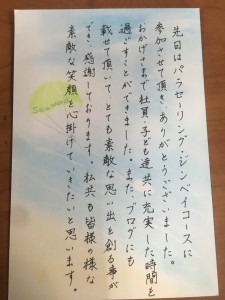 先日はパラセーリング・ジンベイコースに
参加させて頂き、ありがとうございました。
おかげさまで社員・子ども達共に充実した時間を
過ごすことができました。また、ブログにも
載せて頂いて、とても素敵な思い出を創る事が
でき、感謝しております。私共も皆様の様な
素敵な笑顔を心掛けていきたいと思います。